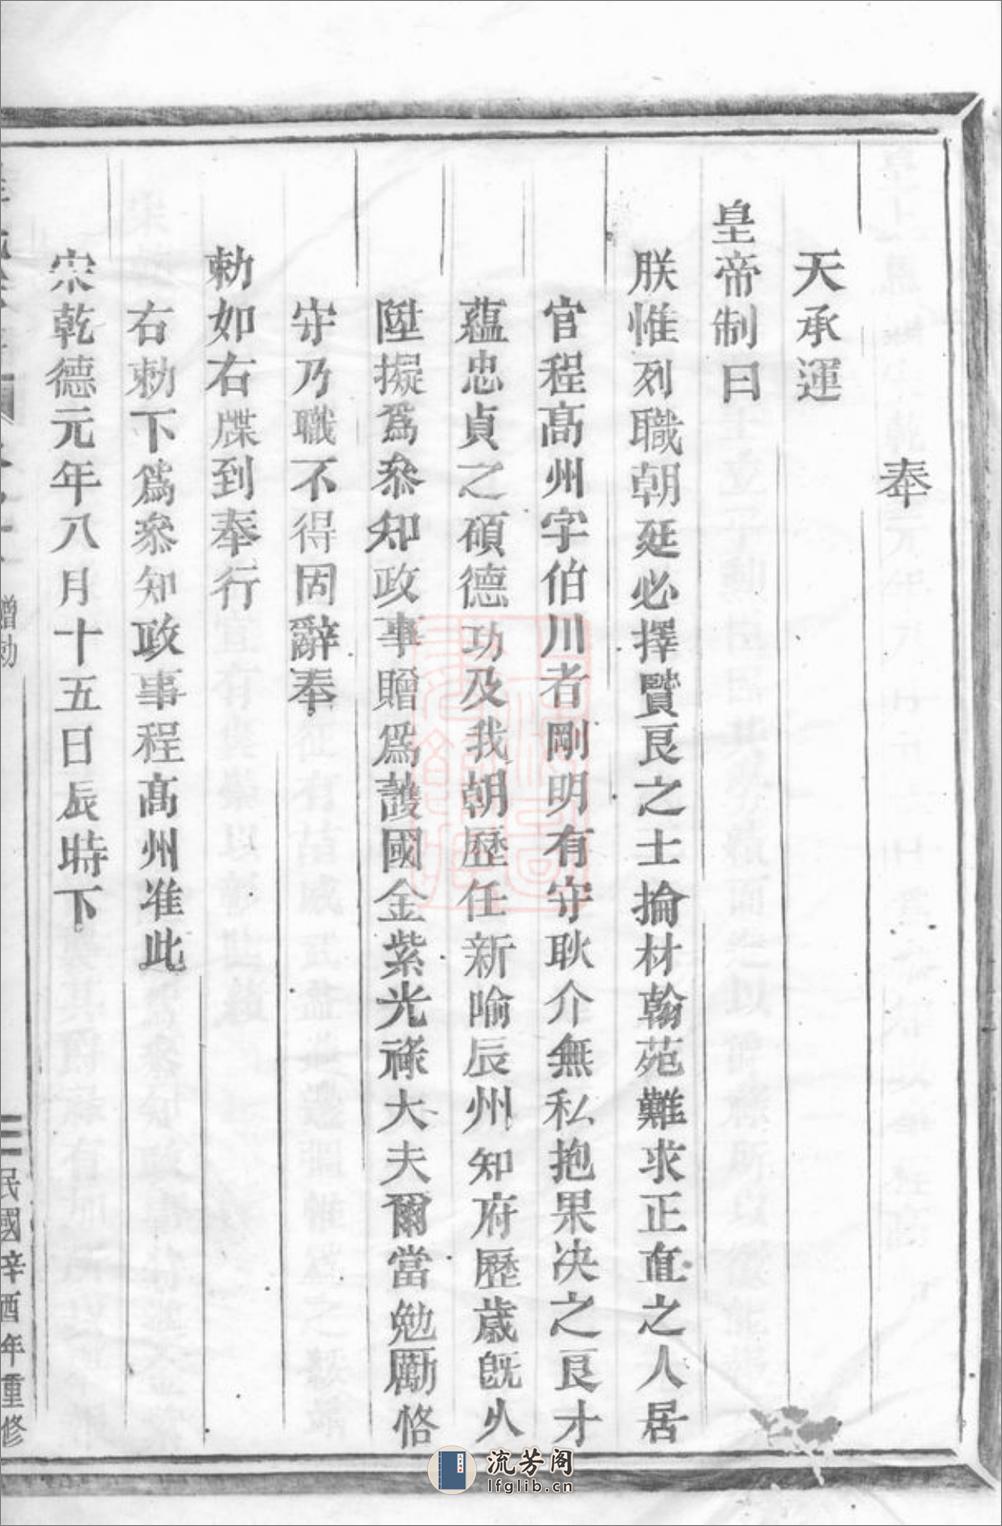 奉
天承運
皇帝制曰
朕惟列職朝廷必擇賢良之士掄材翰苑難求正直之人居
官程髙州字伯川者剛明有守耿介無私抱果決之良才
蘊忠貞之碩德功及我朝歷任新喻辰州知府歷歲旣久
陞擬爲叅知政事贈爲護國金紫光祿大夫爾當勉勵恪
守乃職不得固辭奉
勅如右牒到奉行
右勅下爲叅知政事程髙州准此
宋乾德元年八月十五日辰時下
贈勅
二
民國辛酉年重修
流芳阁
lfglib.cn